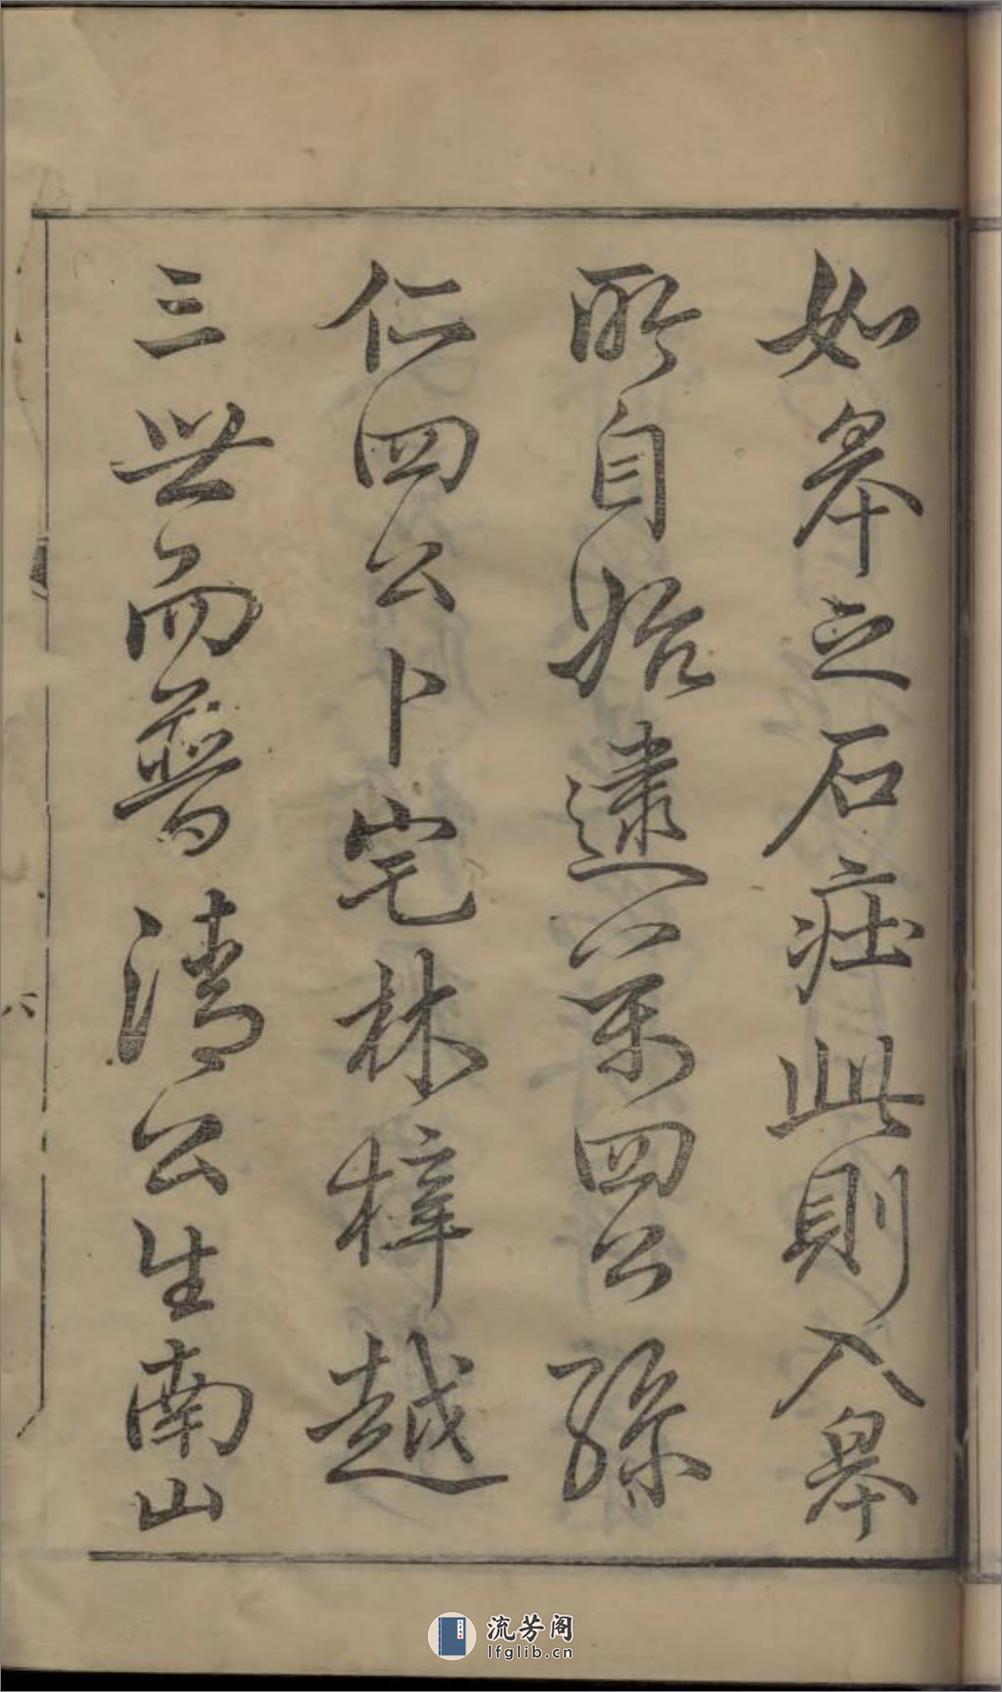 如皋之石莊此則入皋
所自始遠八萬四公孫
仁四公卜宅林梓越
三世而普清公生南山
六
流芳阁
lfglib.cn